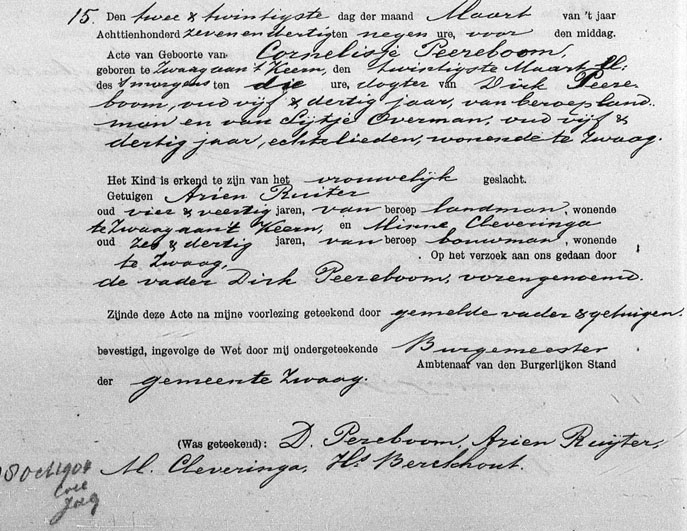 15. Den twee & twintigste dag der maand Maart van 't jaar
Achttienhonderd zeven en dertig ten negen ure, voor den middag.
Acte van Geboorte van Cornelisje Peereboom,
geboren te Zwaag aan 't Keern, den twintigste Maart ll:
des 's morgens ten drie ure, dogter van Dirk Peere-
boom, oud vijf & dertig jaar, van beroep land-
man en van Sijtje Overman, oud vijf &
dertig jaar, echtelieden, wonende te Zwaag.
Het Kind is erkend te zijn van het vrouwelijk geslacht.
Getuigen Arien Ruiter
oud vier & veertig jaren, van beroep landman, wonende
te Zwaag aan 't Keern, en Minne Cleveringa
oud zes & dertig jaren, van beroep bouwman, wonende
te Zwaag. Op het verzoek aan ons gedaan door
de vader Dirk Peereboom, vorengenoemd.
Zijnde deze Acte na mijne voorlezing geteekend door gemelde vader & getuigen.
bevestigd, ingevolge de Wet door mij ondergeteekende Burgemeester
Ambtenaar van den Burgerlijken Stand
der gemeente Zwaag.
(Was geteekend): D. Pereboom, Arien Ruijter,
M. Cleveringa, Hs Berckhout.
8 Oct 1904